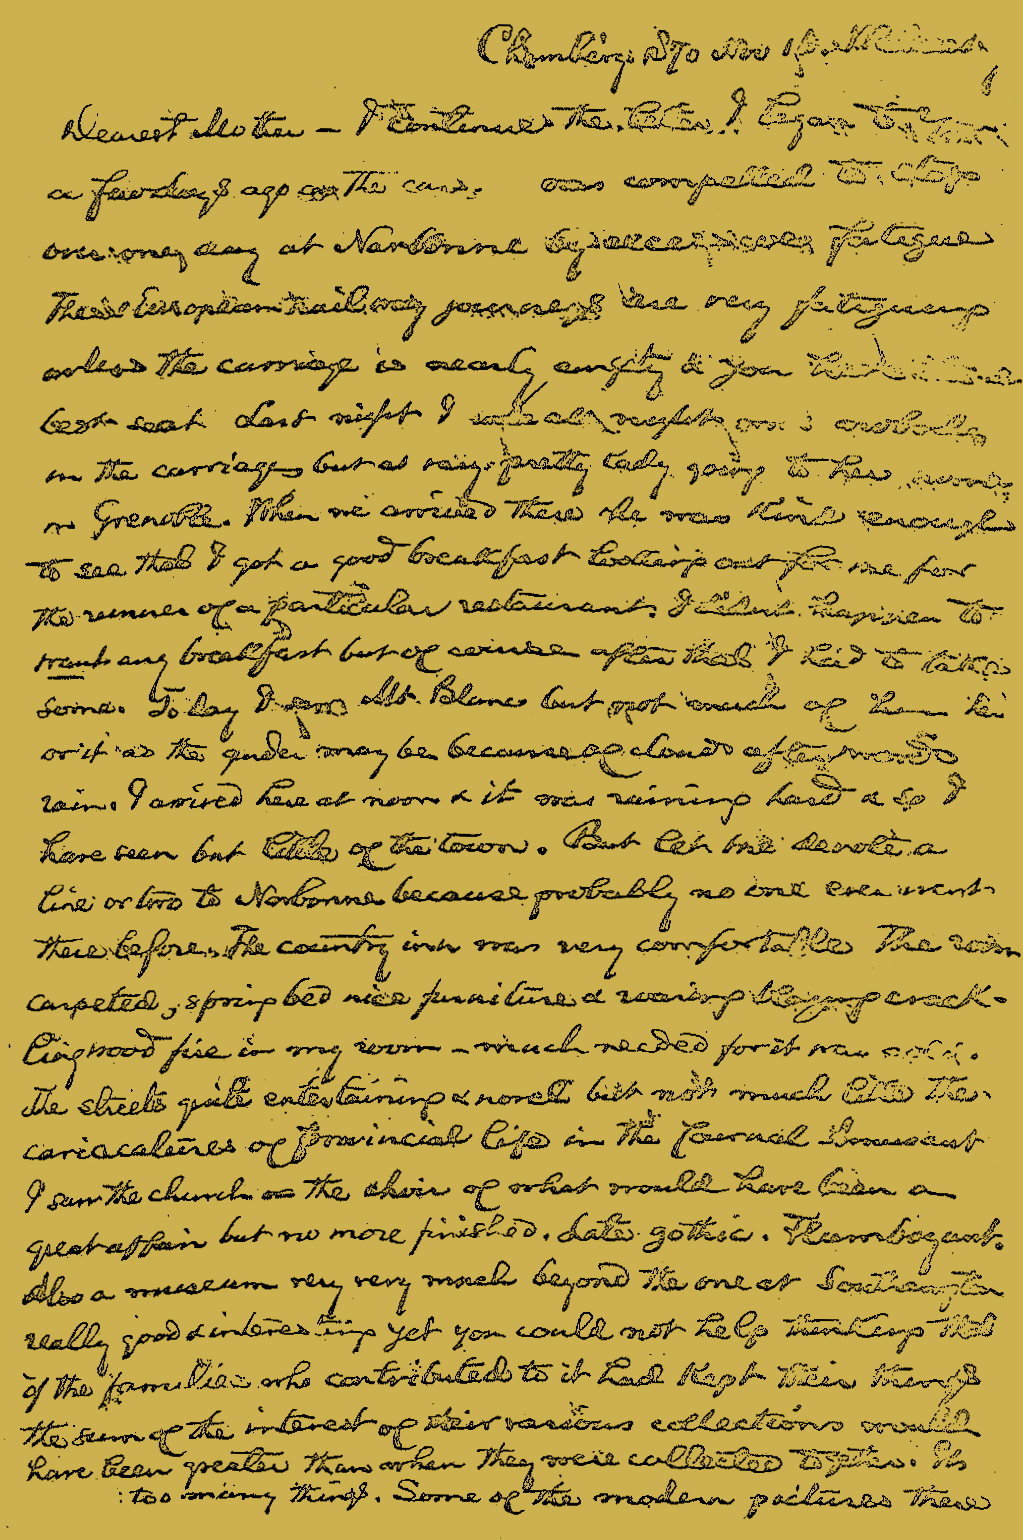 Nov
Dearest Mother – I continue the letter I began to
a few days ago on the cars. was compelled to stop
over one day at Narbonne by excessive fatigue
These European railway journeys are very fatiguing
unless the carriage is nearly empty & you have the
best seat Last night I all night
in the carriage but a very pretty lady going to her
in Grenoble. When we arrived there he was kind enough
to see that I got a good breakfast looking out for me for
the runner of a particular restaurant. I didn't happen to
want any breakfast but of course after that I had to take
some. To day I saw Mt. Blanc but not much of him
or it as the gender may be because of clouds afterwards
rain. I arrived here at noon & it was raining hard & so I
have seen but little of the town. But let me devote a
line or two to Narbonne because probably no one ever went
there before. The country inn was very comfortable The room
carpeted, spring bed nice furniture & roaring blazing crack-
ling wood fire in my room – much needed for it was
The streets quite entertaining & novel but not much like the
caricatures of provincial life in the Journal Amusant
I saw the church or the choir of what would have been a
great affair but no more finished. Late gothic. Flamboyant.
Also a museum very very much beyond the one at Southampton
really good & interesting yet you could not help thinking that
if the families who contributed to it had kept their things
the sum of the interest of their various collections would
have been greater than when they were collected together. It's
too many things. Some of the modern pictures there